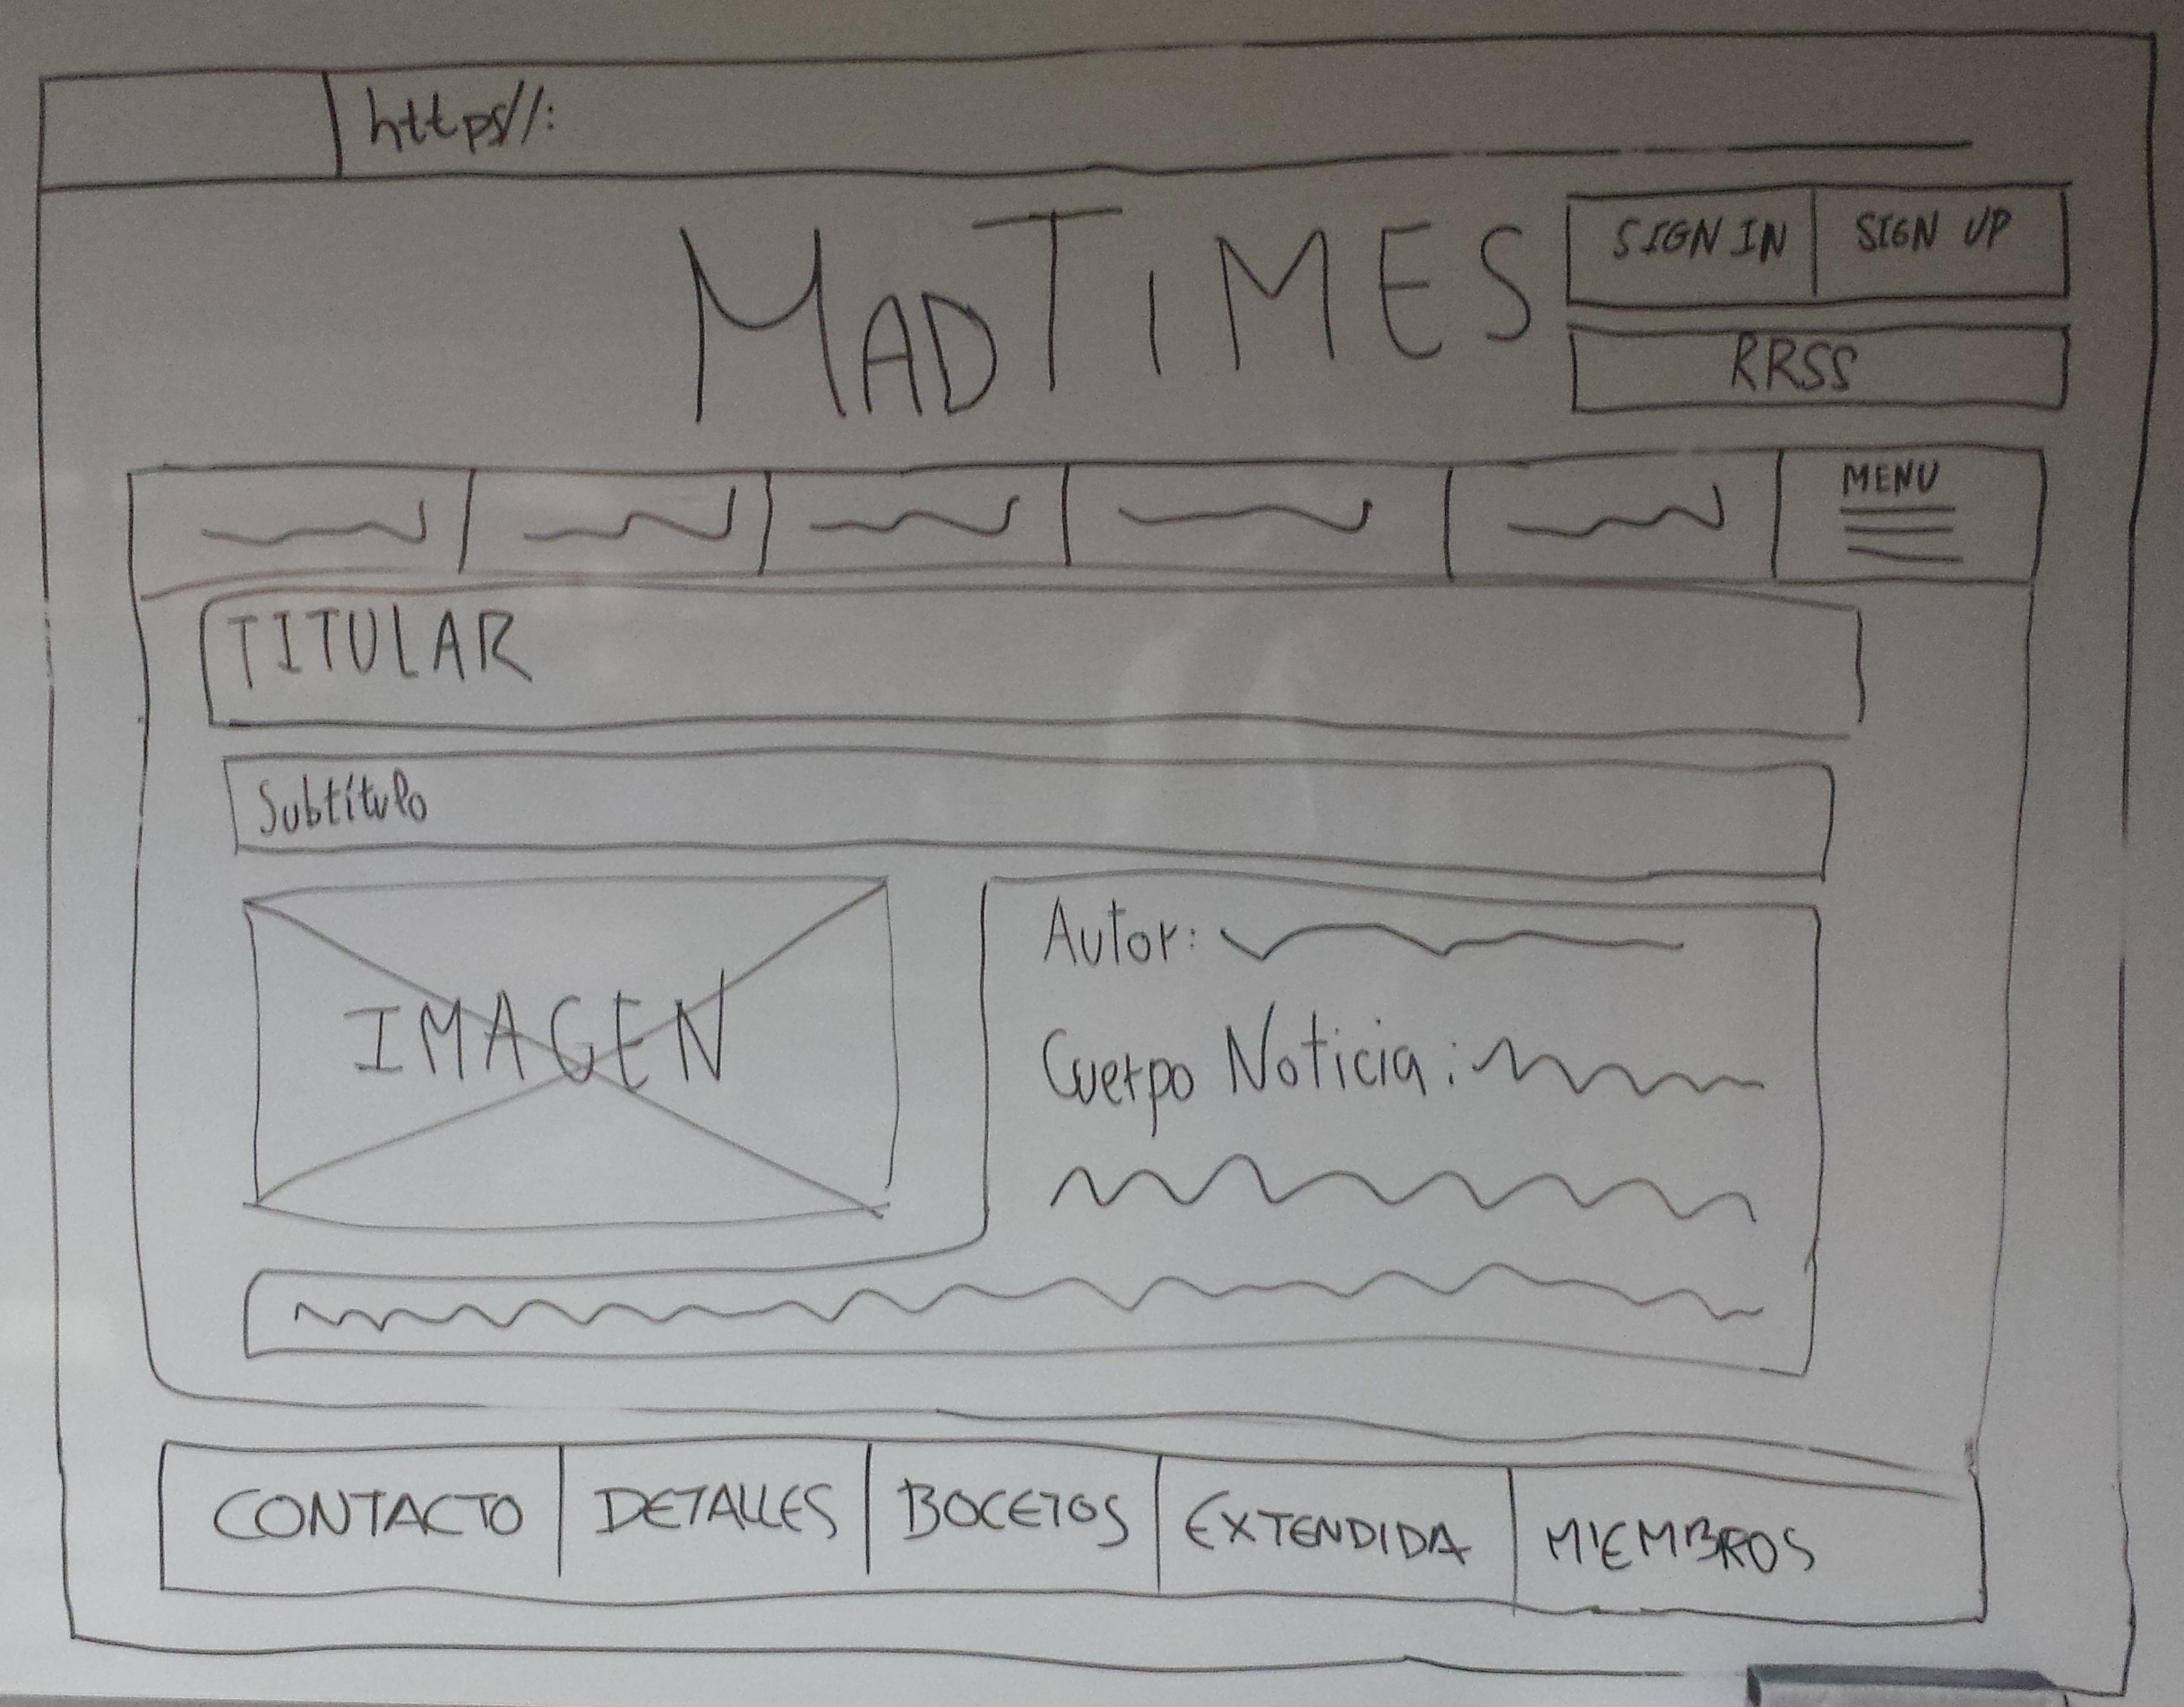 https//:
MADTiMES
SIGN IN
SIGN UP
RRSS
MENU
TITULAR
Subtítulo
IMAGEN
Autor:
Cuerpo Noticia:
CONTACTO
DETALLES
BOCETOS
EXTENDIDA
MIEMBROS